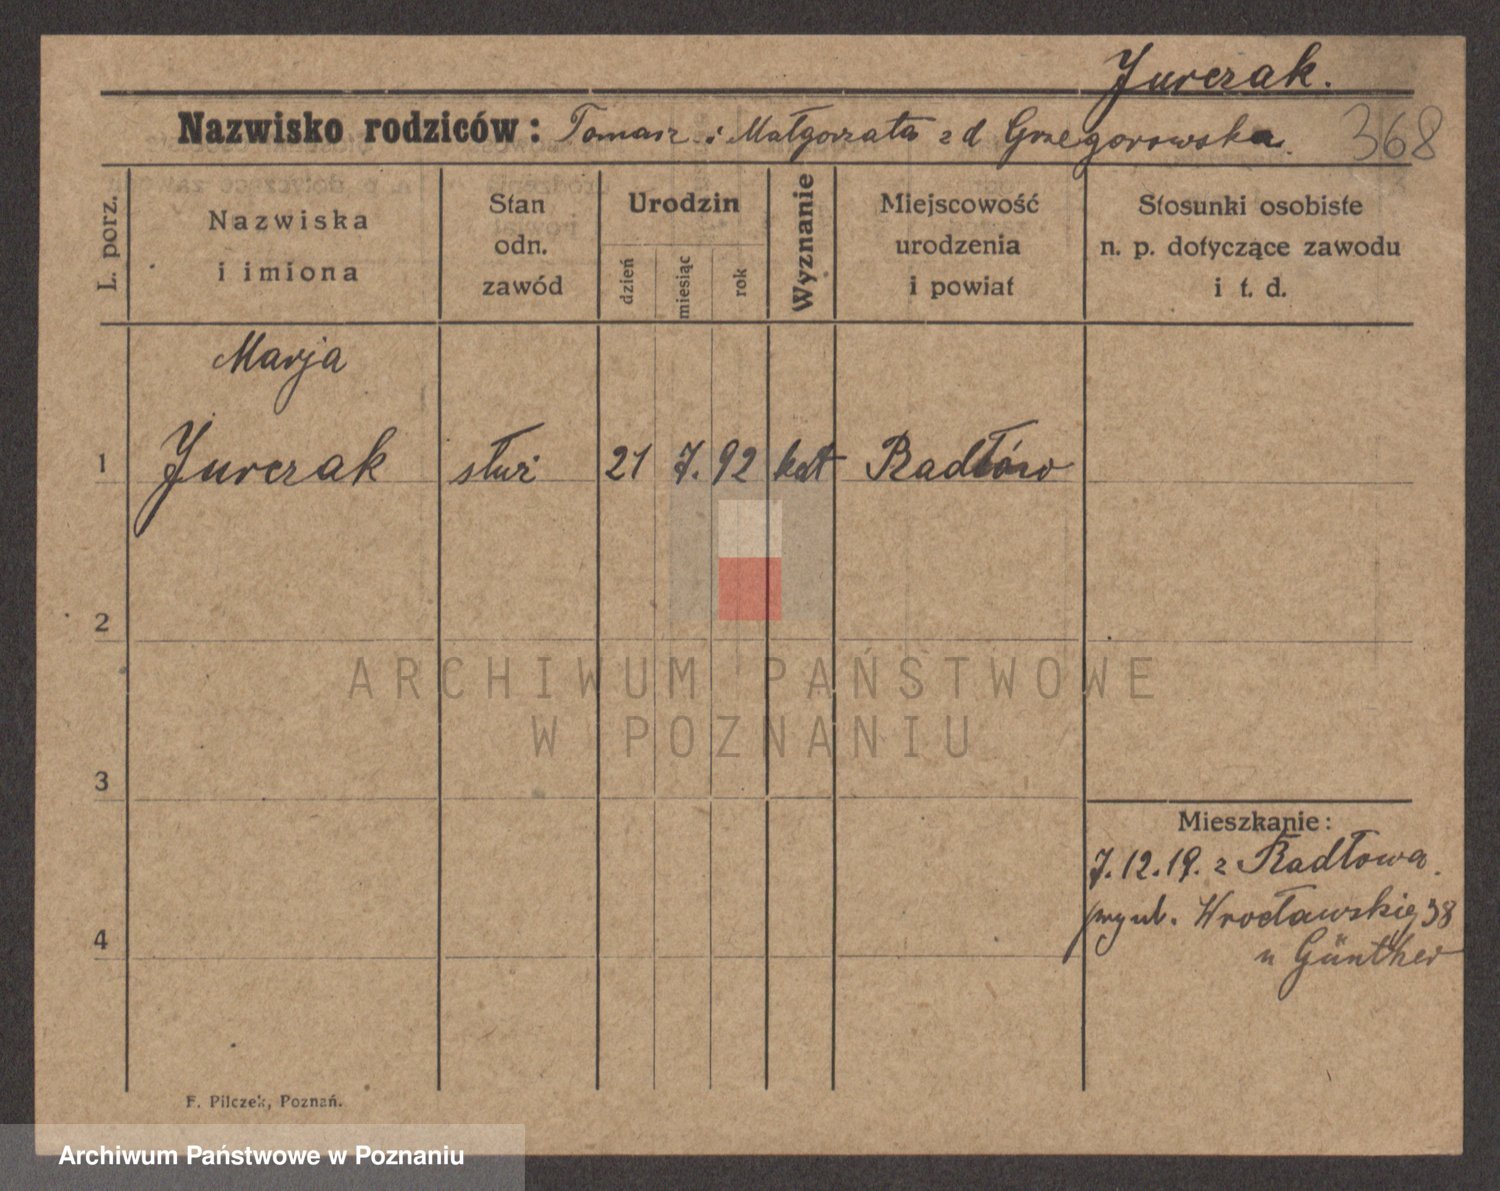 Jurczak.
368
Nazwisko rodziców: Tomasz i Małgorzata z d Grzegorowska.
L. porz.
Nazwiska
i imiona
Stan
odn.
zawód
Urodzin
dzień
miesiąc
rok
Wyznanie
Miejscowość
urodzenia
i powiat
Stosunki osobiste
n. p. dotyczące zawodu
i t. d.
Marja
1 Jurczak służ 21 7. 92 kat Radłów
2
3
4
Mieszkanie:
7.12.19. z Radłowa.
przy ul. Wrocławskiej 38
u Günther
F. Pilczek, Poznań.
ARCHIWUM PAŃSTWOWE
W POZNANIU
Archiwum Państwowe w Poznaniu